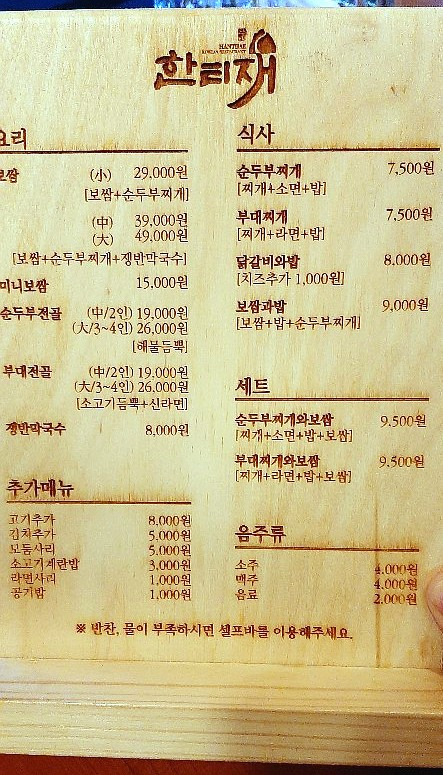 HANTIJAE
KOREAN RESTAURANT
한티재
요리
보쌈 (小) 29,000원
[보쌈+순두부찌개]
(中) 39,000원
(大) 49,000원
[보쌈+순두부찌개+쟁반막국수]
미니보쌈 15,000원
순두부전골 (中/2인) 19,000원
(大/3~4인) 26,000원
[해물듬뿍]
부대전골 (中/2인) 19,000원
(大/3~4인) 26,000원
[소고기듬뿍+신라면]
쟁반막국수 8,000원
추가메뉴
고기추가 8,000원
김치추가 5,000원
모둠사리 5,000원
소고기계란밥 3,000원
라면사리 1,000원
공기밥 1,000원
식사
순두부찌개 7,500원
[찌개+소면+밥]
부대찌개 7,500원
[찌개+라면+밥]
닭갈비와밥 8,000원
[치즈추가 1,000원]
보쌈과밥 9,000원
[보쌈+밥+순두부찌개]
세트
순두부찌개와보쌈 9,500원
[찌개+소면+밥+보쌈]
부대찌개와보쌈 9,500원
[찌개+라면+밥+보쌈]
음주류
소주 4,000원
맥주 4,000원
음료 2,000원
※ 반찬, 물이 부족하시면 셀프바를 이용해주세요.